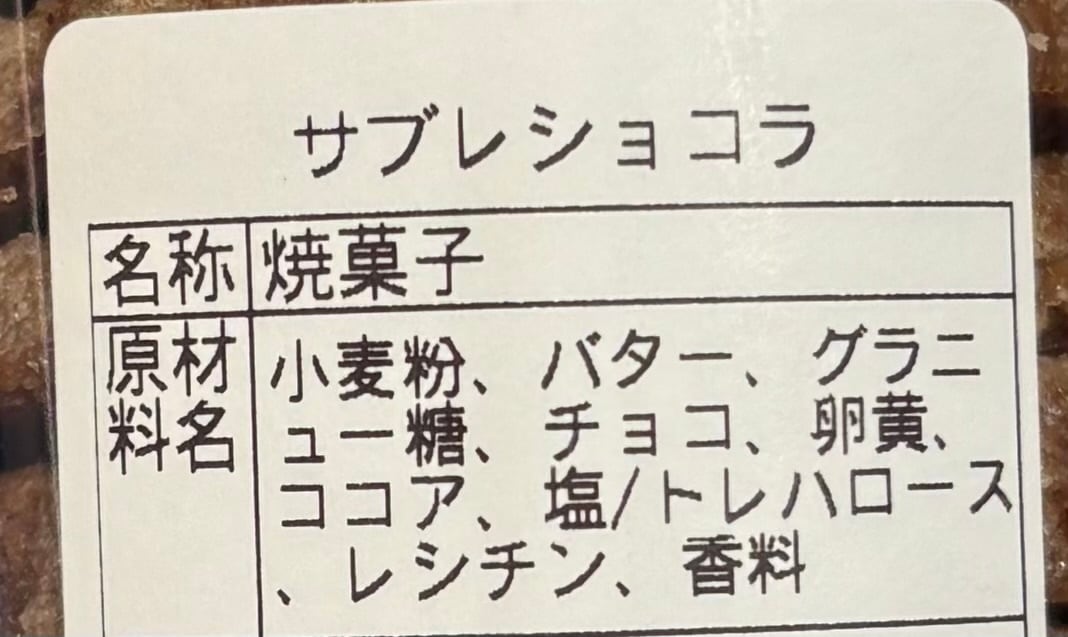 サブレショコラ
名称 焼菓子
原材料名 小麦粉、バター、グラニ
ュー糖、チョコ、卵黄、
ココア、塩/トレハロース
、レシチン、香料